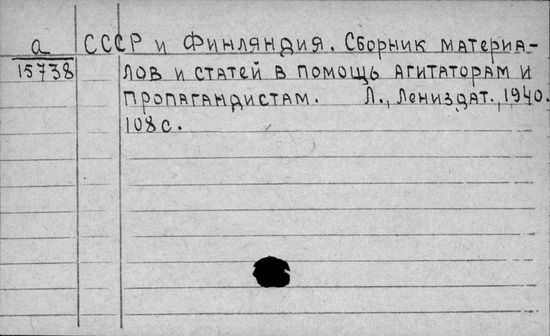 а СССР и Финляндия. Сборник материа-
15738 лов и статей в помощь агитаторам и
пропагандистам. Л., Лениздат., 1940.
108 с.